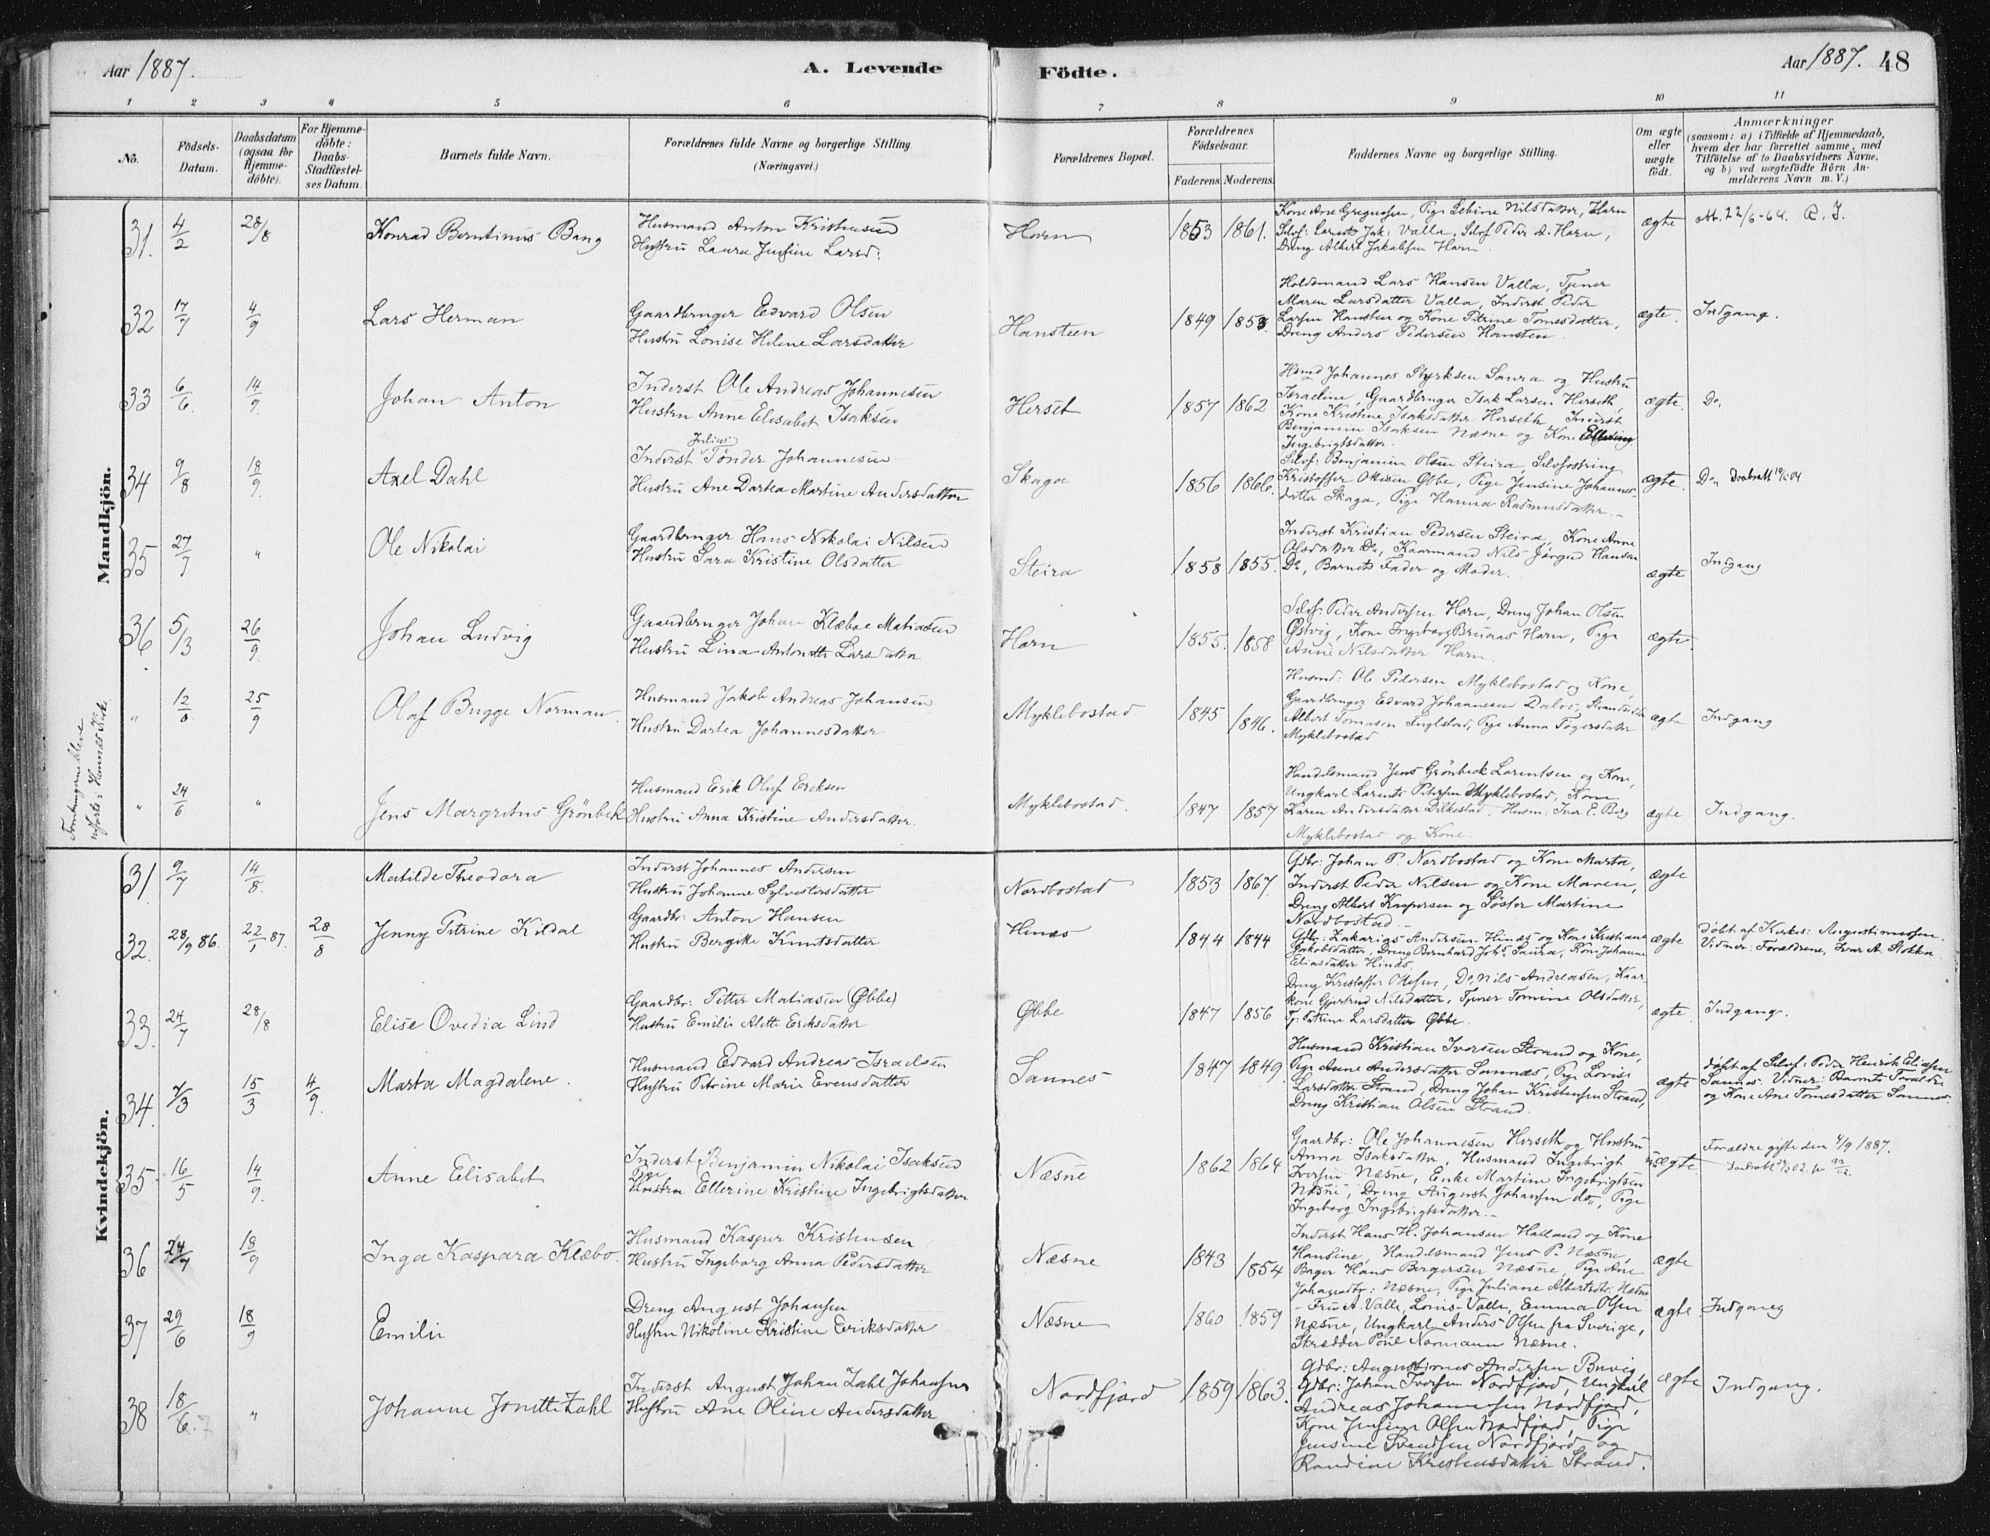 Aar 1887. A. Levende Födte. Aar 1887. 48
1 2 3 4 5 6 7 8 9 10 11
No. Födsels-Datum. Daabsdatum (ogsaa for Hjemme-döbte). For Hjemme-döbte: Daabs-Stadfæstel-ses Datum. Barnets fulde Navn. Forældrenes fulde Navne og borgerlige Stilling. (Næringsvei.) Forældrenes Bopæl. Forældrenes Födselsaar. Faderens Moderens. Faddernes Navne og borgerlige Stilling. Om ægte eller uægte födt. Anmærkninger (saasom: a) i Tilfælde af Hjemmedaab, hvem der har forrettet samme, med Tilföielse af to Daabsvidners Navne, og b) ved uægtefödte Börn An-melderens Navn m. V.)
Mandkjön.
31. 4/2 28/8 Konrad Berntinus Bang
Husmand Anton Kristensen
Hustru Laura Jensine Larsd:
Horn 1853 1861.
Dreng Albert Jakobsen Horn
ægte
32 17/7 4/9 Lars Herman
Gaardbruger Edvard Olsen
Hustru Lovise Helene Larsdatter
Hansteen 1849 1853.
Holdsmand Lars Hansen Valla, Tjener
Maren Larsdatter Valla, Inderst Peder
Larsen Hansten og Kone Petrine Tomesdatter,
Dreng Anders Pedersen Hansten.
ægte. Indgang.
33 6/6. 14/9. Johan Anton
Inderst Ole Andreas Johannesen
Hustru Anne Elisabet Isaksen
Herset 1857 1862
Johannes Styrksen Saura og Hustru
Israeline, Gaardbruger Isak Larsen Herseth,
Kone Kristine Isaksdatter Herseth, Inderst
Benjamin Isaksen Næsne og Kone Ellerine
Ingebrigtsdatter.
ægte. Do.
34 9/8 18/9. Axel Dahl
Inderst Julius Tønder Johannesen
Hustru Ane Dortea Martine Andersdatter
Skaga 1856 1866.
Benjamin Olsen Steira,
Kristoffer Olsen Øbbe, Pige Jensine Johannes-
datter Skaga, Pige Hanna Rasmusdatter. -
ægte. Do.
35 27/7 " Ole Nikolai
Gaardbruger Hans Nikolai Nilsen
Hustru Sara Kristine Olsdatter
Steira 1858 1855.
Inderst Kristian Pedersen Steira, Kone Anne
Olsdatter Do, Kaarmand Nils Jørgen Hansen
Do, Barnets Fader og Moder.
ægte Indgang
36. 5/3 26/9. Johan Ludvig
Gaardbruger Johan Klæboe Matiasen
Hustru Lina Antonette Larsdatter
Horn 1855. 1858
Peder Andersen Horn, Dreng Johan Olsen
Østvig, Kone Ingeborg Bruaas Horn, Pige
Anne Nilsdatter Horn.
ægte.
" 12/8 25/9 Olaf Bugge Norman
Husmand Jakob Andreas Johansen
Hustru Dortea Johannesdatter
Myklebostad 1845 1846.
Husmd. Ole Pedersen Myklebostad og Kone,
Gaardbruger Edvard Johannesen Dalos,
Albert Tomasen Inglstad, Pige Anna Togersdatter
Myklebostad
ægte Indgang
" 24/6 " Jens Margretus Grönbek
Husmand Erik Oluf Eriksen
Hustru Anna Kristine Andersdatter.
Myklebostad. 1847 1857
Handelsmand Jens Grønbeck Lorentsen og Kone,
Ungkarl Lorents Petersen Myklebostad, Kone
Karen Andersdatter Dilkestad, Husm: Iver E. Berg
Myklebostad og Kone.
ægte Indgang.
Kvindekjön.
31. 9/7 14/8. Matilde Theodora
Inderst Johannes Andersen
Hustru Johanne Sylvestersdatter
Nordbostad 1853 1867.
Gdbr: Johan P. Nordbostad og Kone Marta,
Inderst Peder Nilsen og Kone Maren,
Dreng Albert Kaspersen og Søster Martine
Nordbostad. -
ægte
32. 28/9 86. 22/1 87. 28/8 Jenny Petrine Kildal
Gaardbr: Anton Hansen
Hustru Bergitte Knutsdatter
Hinæs 1844 1844
Gdbr: Zakarias Andersen Hinæs og Kone Kristiane
Jakobsdatter, Dreng Bernhard Johs. Saura, Kone Johanne
Eliasdatter Hinæs.
ægte
døbt af Kirkes: Augustinussen.
Vidner: Forældrene, Ivar A. Stokka
33. 24/7 28/8 Elise Ovedia Lind
Gaardbr: Petter Matiasen (Øbbe)
Hustru Emilie Alette Eriksdatter
Øbbe 1847 1856
Dreng Kristoffer Olsen, Do, Nils Andreasen, Kaar
kone Gjertrud Nilsdatter, Tjener Tomine Olsdatter,
Tj: Petrine Larsdatter Øbbe.
ægte. Indgang.
34. 7/3 15/3 4/9. Marta Magdalene.
Husmand Edvard Andreas Israelsen
Hustru Petrine Marie Evensdatter
Sannes 1847 1849.
Husmand Kristian Iversen Strand og Kone,
Pige Anne Andersdatter Sannæs, Pige Lovise
Larsdatter Strand, Dreng Johan Kristensen Strand,
Dreng Kristian Olsen Strand.
ægte
døbt af Selvf: Peder Henrik Eliassen
Sannes. Vidner: Barnets Forældre
og Kone Ane Tomesdatter Sannæs.
35. 16/5 14/9. Anne Elisabet
Inderst Benjamin Nikolai Isaksen
Hustru Ellerine Kristine Ingebrigtsdatter
Næsne 1862 1864
Gaardbr: Ole Johannesen Herseth og Hustru
Anna Isaksdatter, Husmand Ingebrigt
Iversen Næsne, Enke Martine Ingebrigtsen
Næsne, Dreng August Johansen do, Pige
Ingeborg Ingebrigtsdatter. -
uægte.
Forældre gifte den 4/9 1887.
36 24/7 18/9 Inga Kaspara Klæbo.
Husmand Kasper Kristensen
Hustru Ingeborg Anna Pedersdatter
Næsne 1843 1854
Inderst Hans H. Johansen Halland og Kone
Hansine, Handelsmand Jens P. Næsne,
Bager Hans Bergersen Næsne, Pige Ane
Næsne, Pige Juliane Næsne
ægte
37 29/6 18/9 Emilie
Dreng August Johansen
Hustru Nikoline Kristine Eriksdatter
Næsne 1860 1859
- Fru A. Valla, Lovis Valla, Emma Olsen
Næsne, Ungkarl Anders Olsen fra Sverige,
Skrædder Poul Normann Næsne.
ægte. Indgang
38 18/6. " Johanne Jonette Zahl
Inderst August Johan Zahl Johansen
Hustru Ane Oline Andersdatter
Nordfjord 1859 1863.
Gdbr: Augustinus Andersen Buvig
Gdbr: Johan Iversen Nordfjord, Ungkarl
Andreas Johannesen Nordfjord,
Kone Jensine Olsen Nordfjord, Pige
Jensine Svendsen Nordfjord og
Randine Kristensdatter Strand.
ægte Indgang.